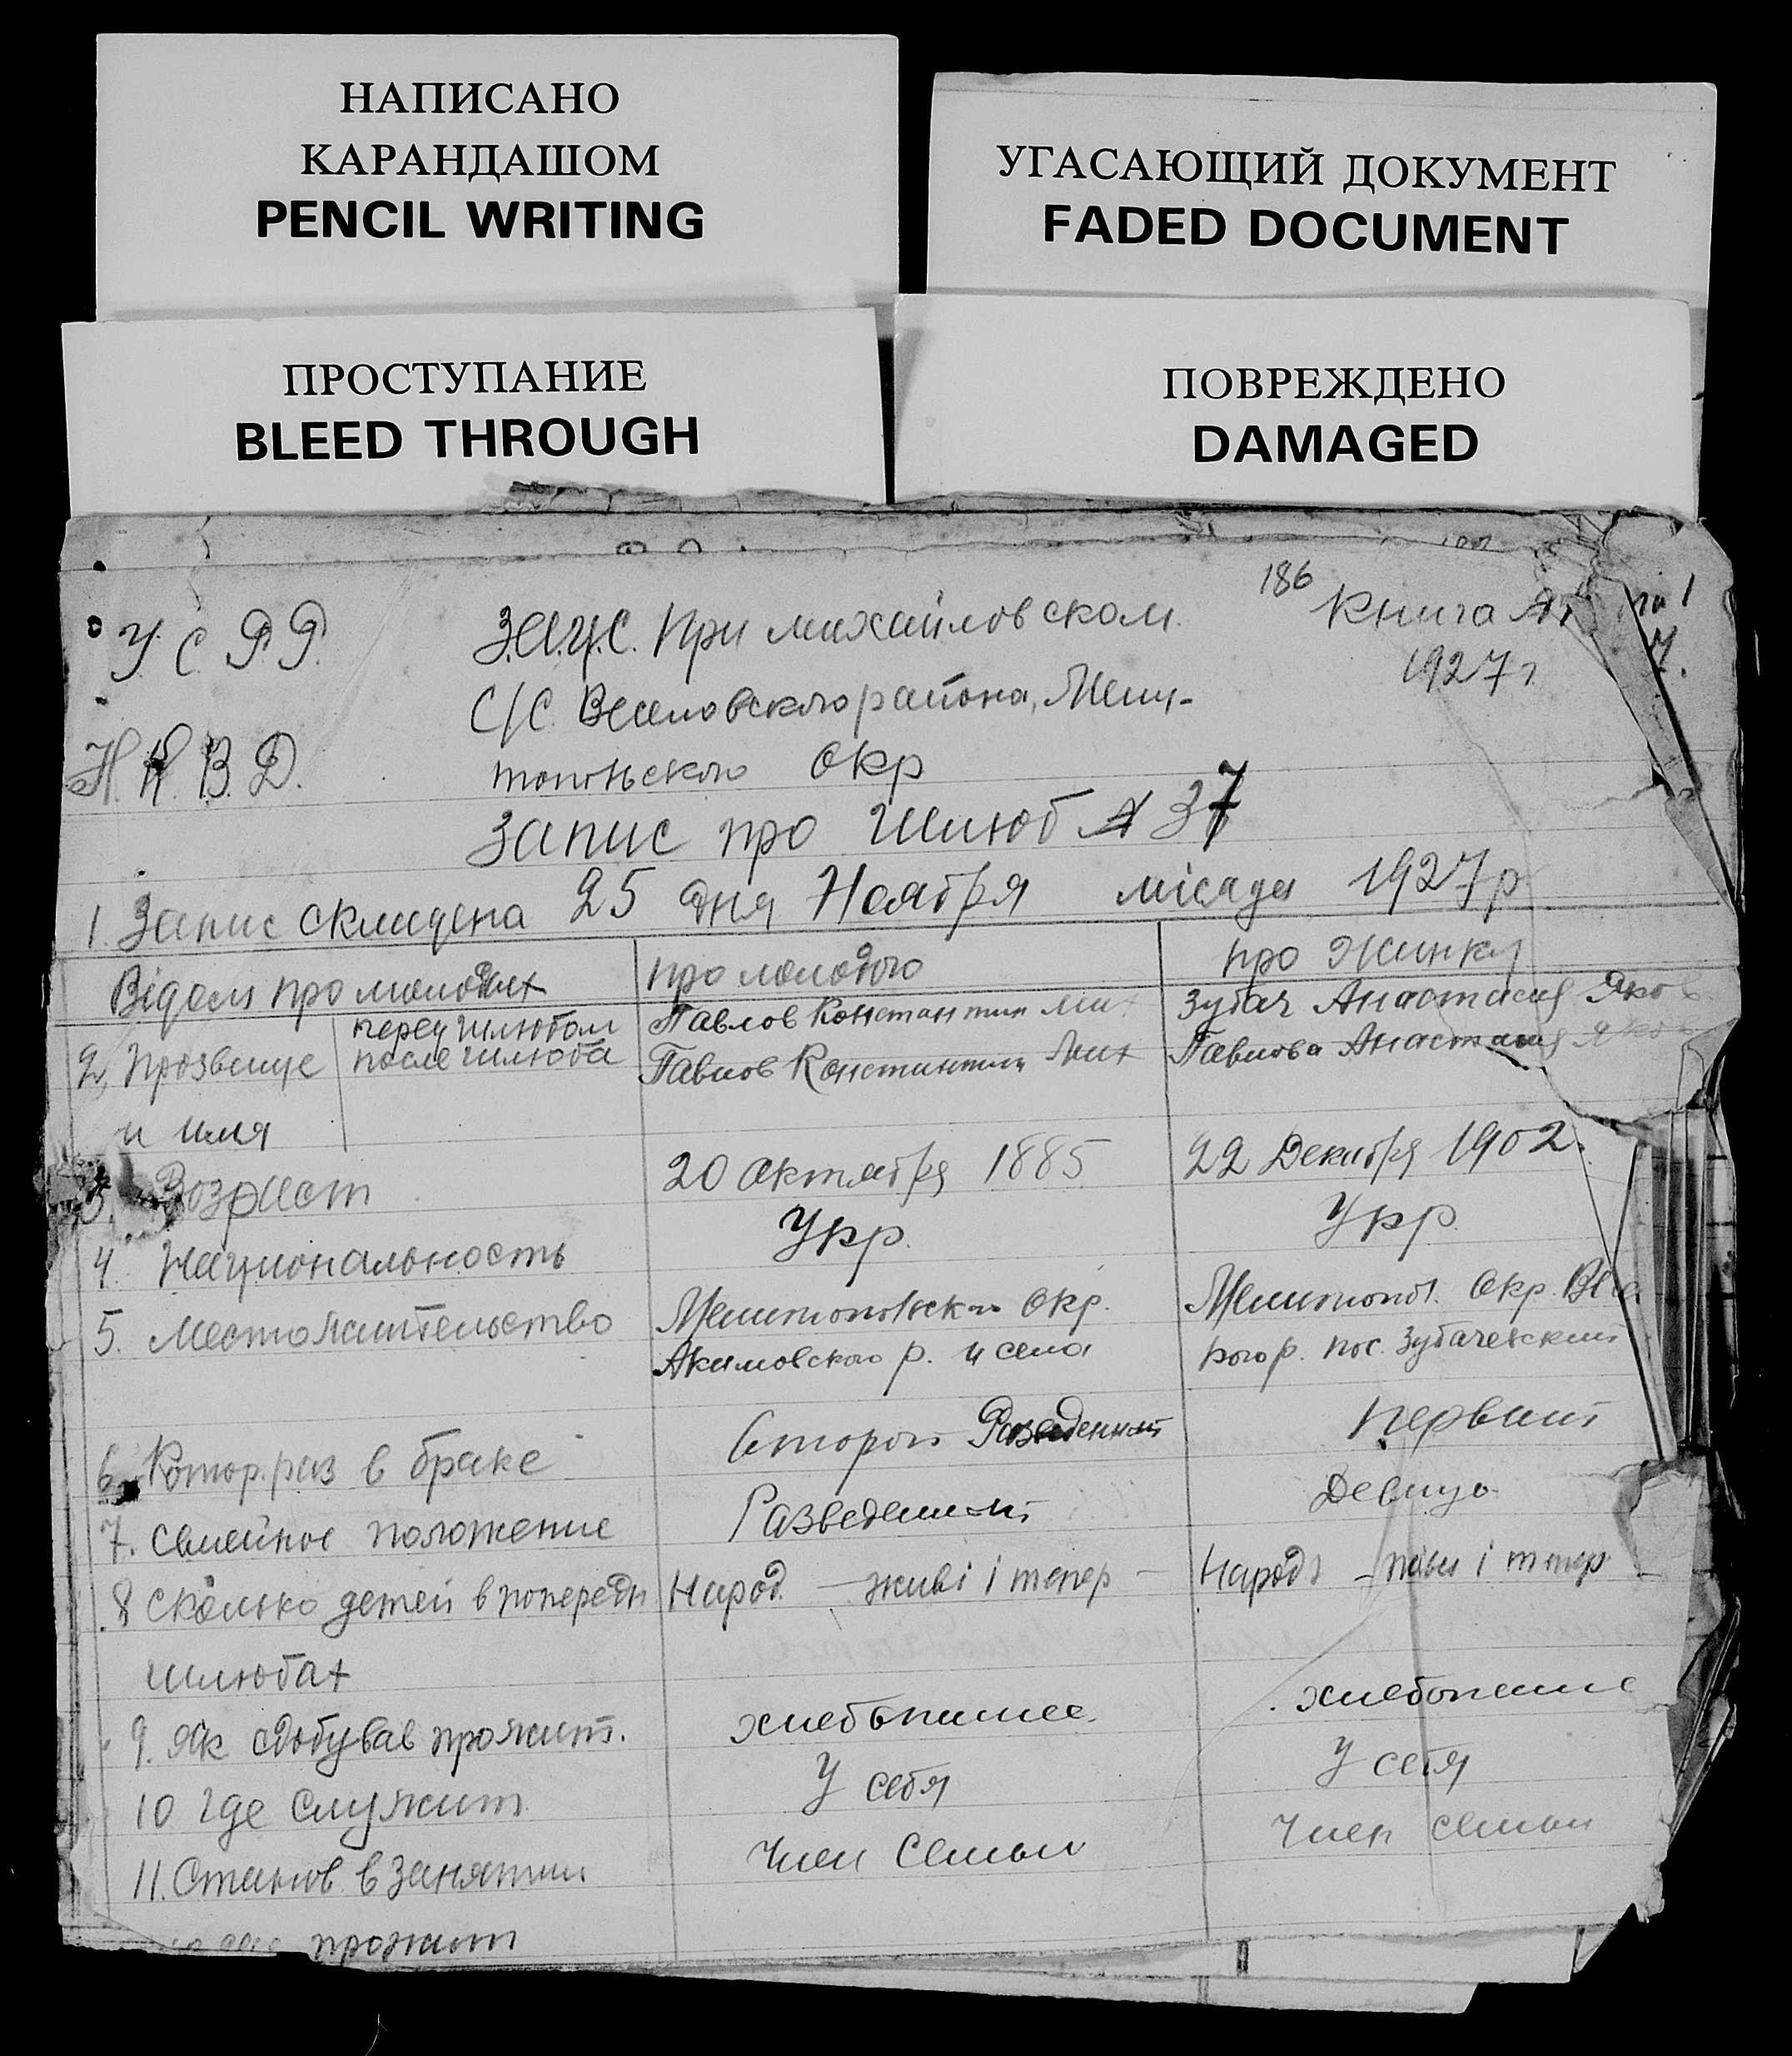 НАПИСАНО
КАРАНДАШОМ
PENCIL WRITING
УГАСАЮЩИЙ ДОКУМЕНТ
FADED DOCUMENT
ПРОСТУПАНИЕ
BLEED THROUGH
ПОВРЕЖДЕНО
DAMAGED
186 Книга №
1927 г
У. С. Р. Р. З.А.Ц.С. При михайловском
С/С Веселовского района, Мели-
Н. К. В. Д. топольского Окр
Запис про Шлюб № 37
1. Запис складена 25 дня Ноября місяця 1927 р
Відом про молодих про молодого про Жинку
перед шлюбом Павлов Константин Мих Зубач Анастасия Яков
2, Прозвеще после шлюба Павлов Константин Мих Павлова Анастасия Яков
и имя
3. Возраст 20 Октября 1885 22 Декабря 1902.
4. Национальность Укр. Укр.
5. Местожительство Мелитопольскаго Окр. Мелитопол. Окр. Весе
Акимовского р. ц села кого р. пос. Зубачевский
6. Котор. раз в браке второй Разведенный первый
7. Семейное положение Разведенный Девица
8 Сколько детей в попередн Народ. — живі і тепер — Народ — живі і тепер —
шлюбах
9. Як сдобував прожит. хлебопашес. хлебопаше
10 Где служит У себя У себя
11. Станов. в занятии Член Семьи Член семьи
прожит